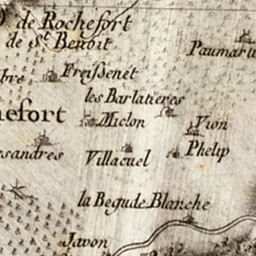 de Rochefort
de St. Benoit
Paumart
Freissenet
les Barlatieres
efort
Miclon
Vion
sandres
Villacuel
Phelip
la Begude Blanche
Javon